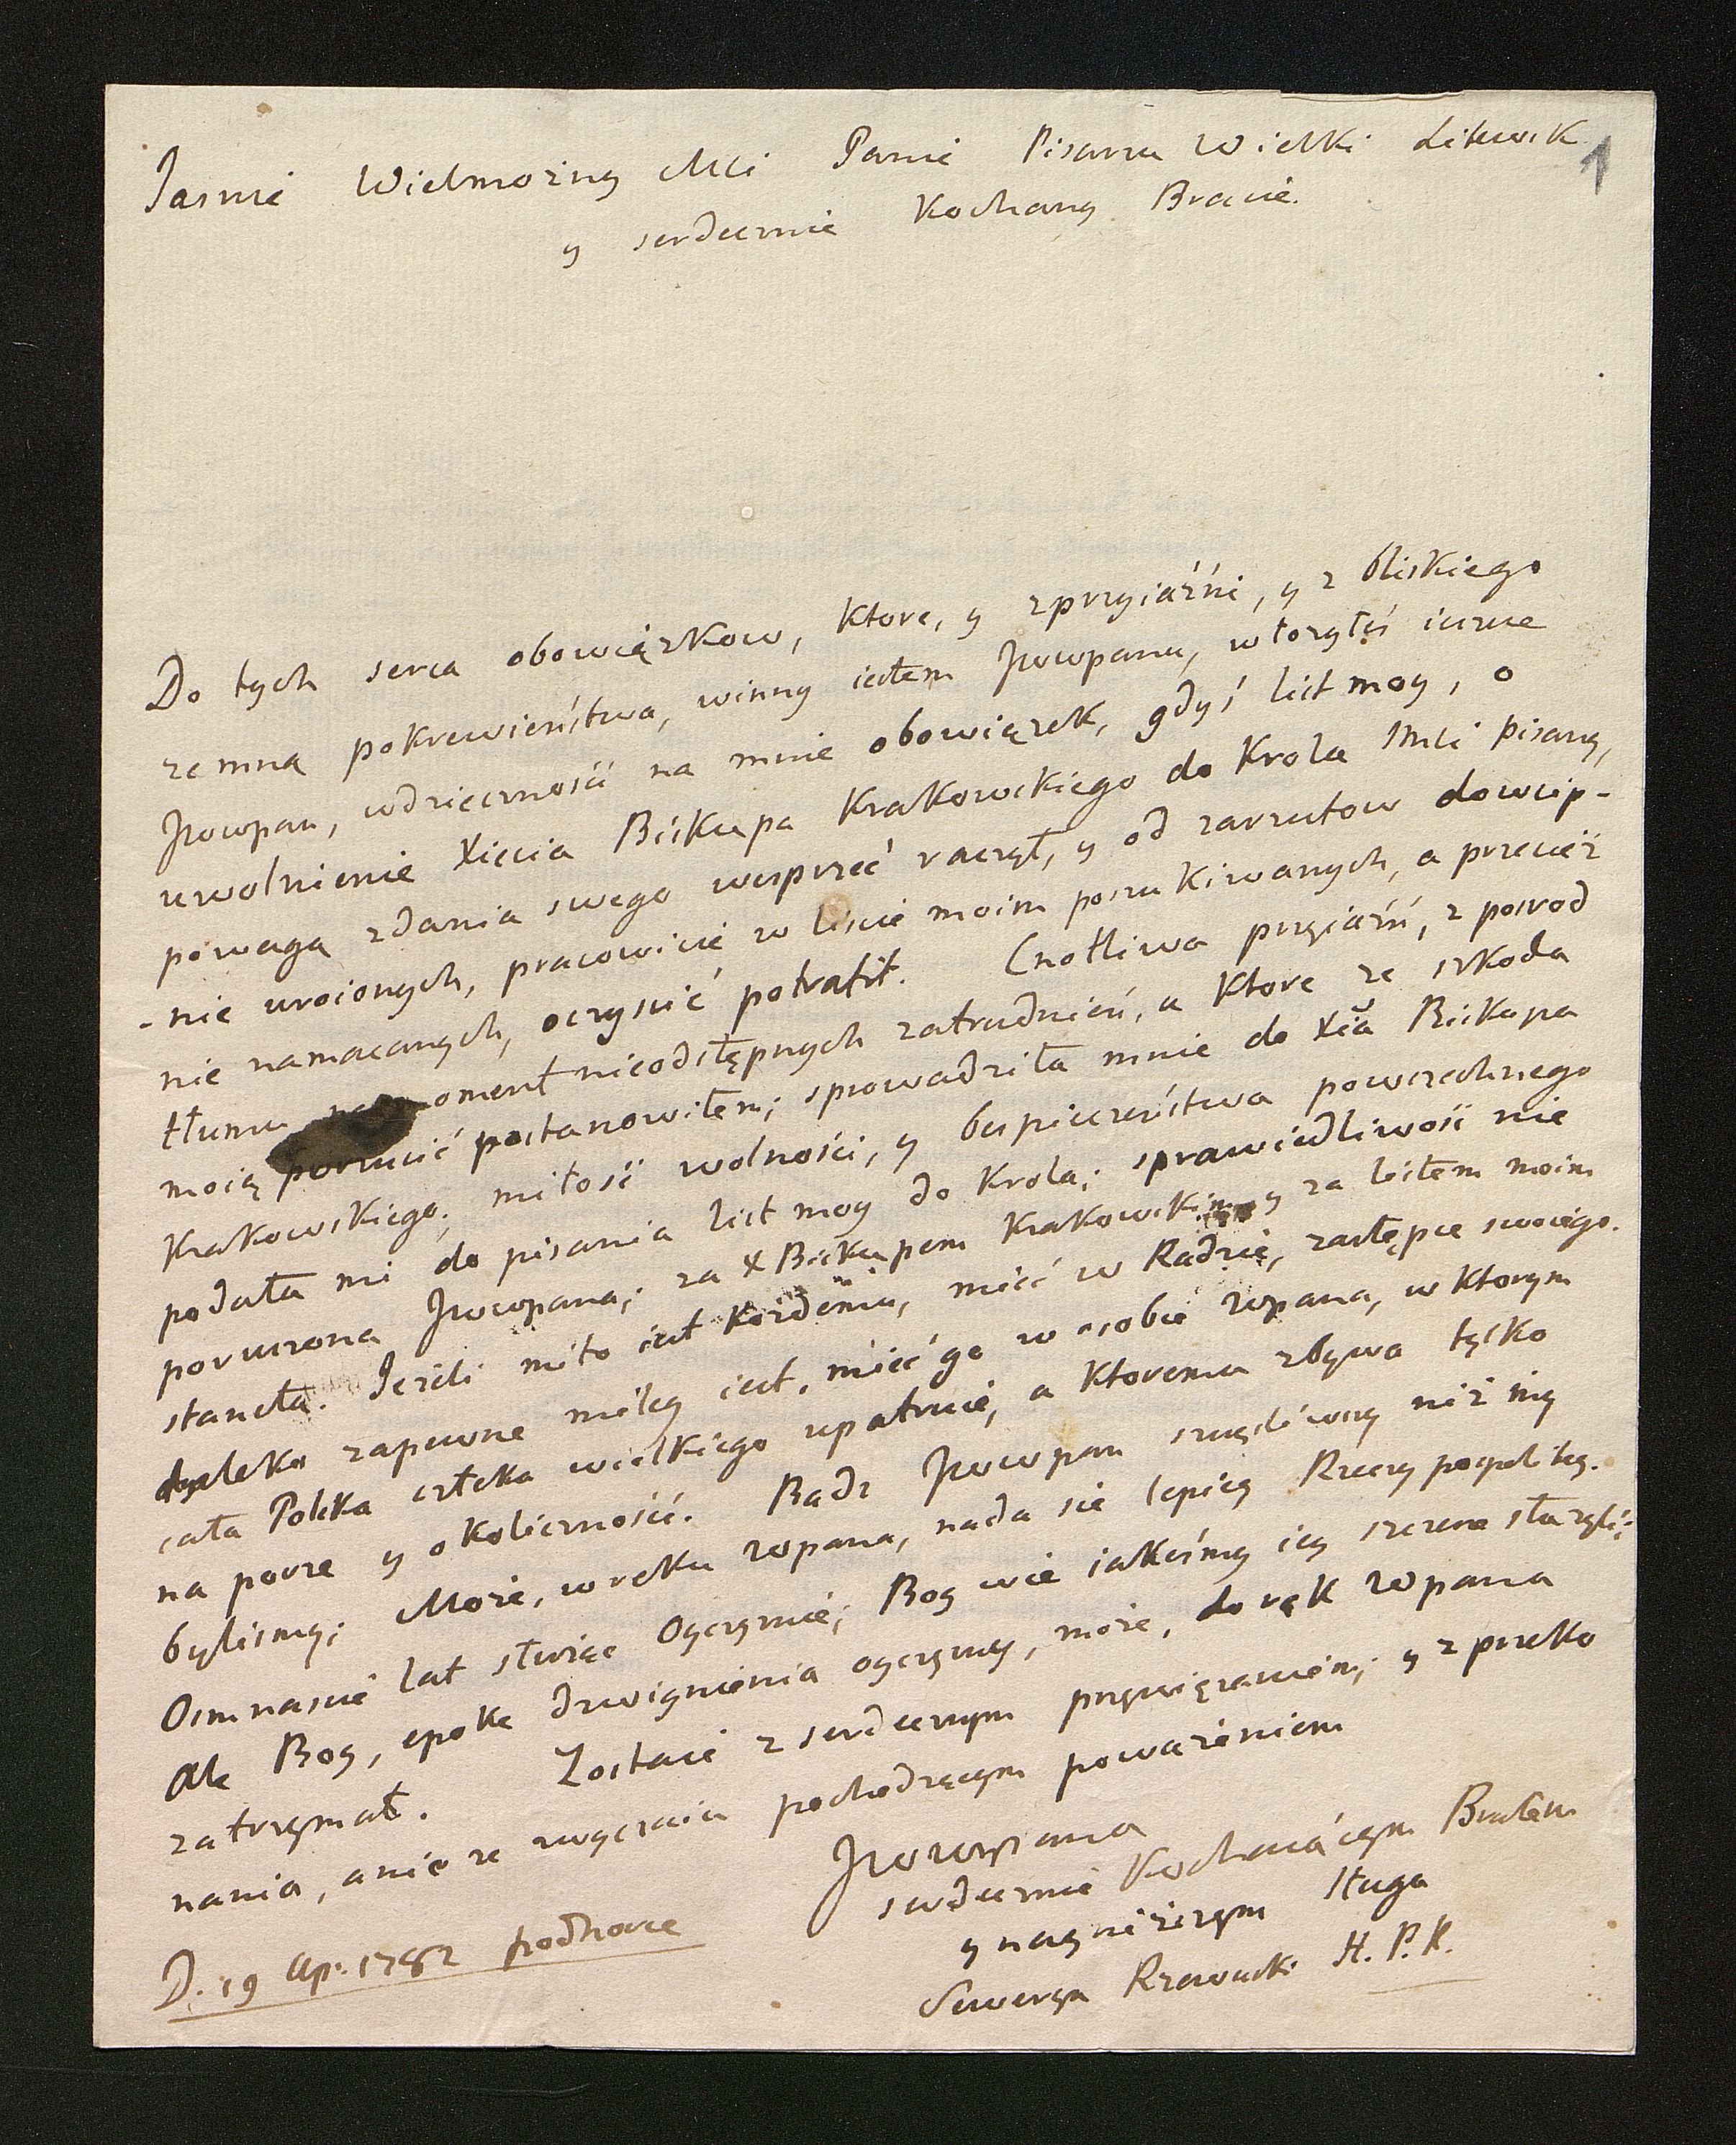 Jasnie Wielmozny Mci Panie Pisarzu Wielki Litewsk. 1
y serdecznie Kochany Bracie.
Do tych serca obowiązkow, Ktore, y zprzyiaźni, y z bliskiego
zemną pokrewieństwa, winny iestem Jwwpanu, włozyłęś ieszcze
Jwwpan, wdzięcznosci na mnie obowiązek, gdyś list moy, o
uwolnienie Xięcia Biskupa Krakowskiego do Krola Jmci pisany,
powagą zdania swego wesprzeć raczył, y od zarzutow dowcip-
-nie uroionych, pracowicie w liscie moim poszukiwanych, a przecież
nie namacanych, oczyscić potrafił. Cnotliwa przyiaźń, z posrod
tłumu na moment nieodstępnych zatrudnień, a Ktore ze szkodą
moią porzucić postanowiłem; sprowadziła mnie do Xia Biskupa
Krakowskiego; miłosć wolności, y bespieczeństwa powszechnego
podała mi do pisania list moy do Krola; sprawiedliwosć nie
poruszona Jwwpana; za X Biskupem Krakowskim y za listem moim
staneła. Jezeli miło iest Kozdemu, mieć w Radzie, zastępce swoiego.
daleko zapewne miley iest, mieć go w osobie Wpana, w Ktorym
cała Polska człeka wielkiego upatruie, a Ktoremu zbywa tylko
na porze y okolicznosć. Bądz Jwwpan szczęsliwszy niż my
bylismy; Moze, w reku Wpana, nada sie lepiey Rzeczypospolitey.
Osmnascie lat służąc Oyczyznie; Bog wie iakesmy iey szczerze służyli;
Ale Bog, epoke dzwignienia oyczyzny, moze, do rąk Wpana
zatrzymał. Zostaie z serdecznym przywiązaniem; y z przeko
nania, a nie ze zwyczaiu pochodzącym powazeniem
Jwwpana
serdecznie Kochaiącym Bratem
y nayniższym sługa
D. 19 Ap. 1782 podhorce
Seweryn Rzewuski H. P. K.